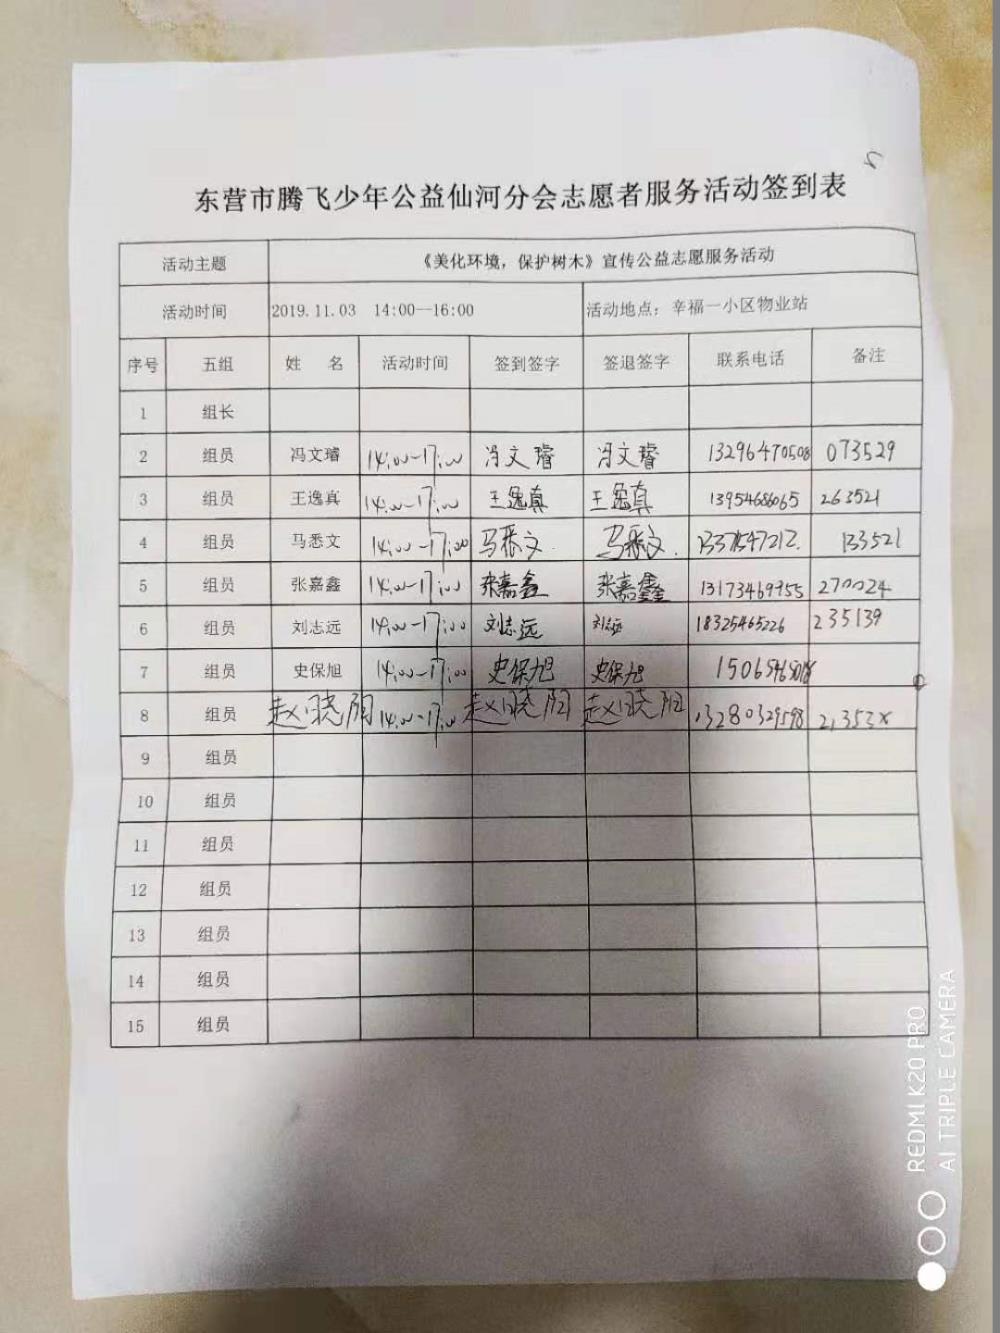 东营市腾飞少年公益仙河分会志愿者服务活动签到表
活动主题 《美化环境，保护树木》宣传公益志愿服务活动
活动时间 2019.11.03 14:00—16:00 活动地点：辛福一小区物业站
序号 五组 姓 名 活动时间 签到签字 签退签字 联系电话 备注
1 组长
2 组员 冯文璿 14:00-17:00 冯文璿 冯文璿 13296470508 073529
3 组员 王逸真 14:00-17:00 王逸真 王逸真 13954686065 263521
4 组员 马悉文 14:00-17:00 马悉文. 马悉文. 133521
5 组员 张嘉鑫 14:00-17:00 张嘉鑫 张嘉鑫 13173469955 270024
6 组员 刘志远 14:00-17:00 刘志远 刘志远 18325465226 235139
7 组员 史保旭 14:00-17:00 史保旭 史保旭
8 组员 赵晓阳 14:00-17:00 赵晓阳 赵晓阳 13280329598 21353X
9 组员
10 组员
11 组员
12 组员
13 组员
14 组员
15 组员
REDMI K20 PRO
AI TRIPLE CAMERA